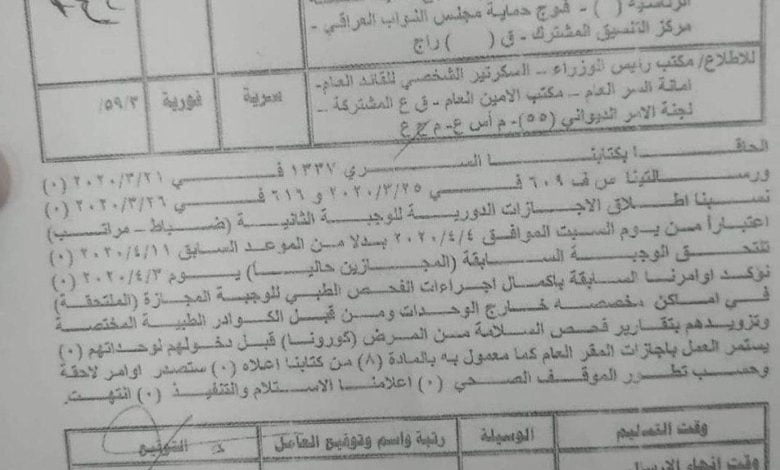 الرئاسية ( ) - فوج حماية مجلس النواب العراقي -
مركز التنسيق المشترك - ق ( ) راج
للاطلاع/ مكتب رئيس الوزراء – السكرتير الشخصي للقائد العام-
امانة السر العام – مكتب الامين العام - ق ع المشتركة –
لجنة الامر الديواني (٥٥)- م أس ع- م ح ع
سرية
فورية
٥٩/٣/
الحاقا بكتابنا السري ١٣٣٧ في ٢٠٢٠/٣/٢١ (٠)
ورسالتينا س ف ٦٠٩ في ٢٠٢٠/٣/٢٥ و ٦١٦ في ٢٠٢٠/٣/٢٦ (٠)
نسبنا اطلاق الاجازات الدورية للوجبة الثانية (ضباط - مراتب)
اعتباراً من يوم السبت الموافق ٢٠٢٠/٤/٤ بدلا من الموعد السابق ٢٠٢٠/٤/١١ (٠)
تلتحق الوجبة السابقة (المجازين حالياً) يوم ٢٠٢٠/٤/٣ (٠)
نؤكد اوامرنا السابقة بإكمال اجراءات الفحص الطبي للوجبة المجازة (الملتحقة)
في اماكن مخصصه خارج الوحدات ومن قبل الكوادر الطبية المختصة
وتزويدهم بتقارير فحص السلامة من المرض (كورونا) قبل دخولهم لوحداتهم (٠)
يستمر العمل باجازات المقر العام كما معمول به بالمادة (٨) من كتابنا اعلاه (٠) ستصدر اوامر لاحقة
وحسب تطور الموقف الصحي (٠) اعلامنا الاستلام والتنفيذ (٠) انتهت.
وقت التسليم
الوسيلة
رتبة واسم وتوقيع العامل
التوقيع
وقت انهاء